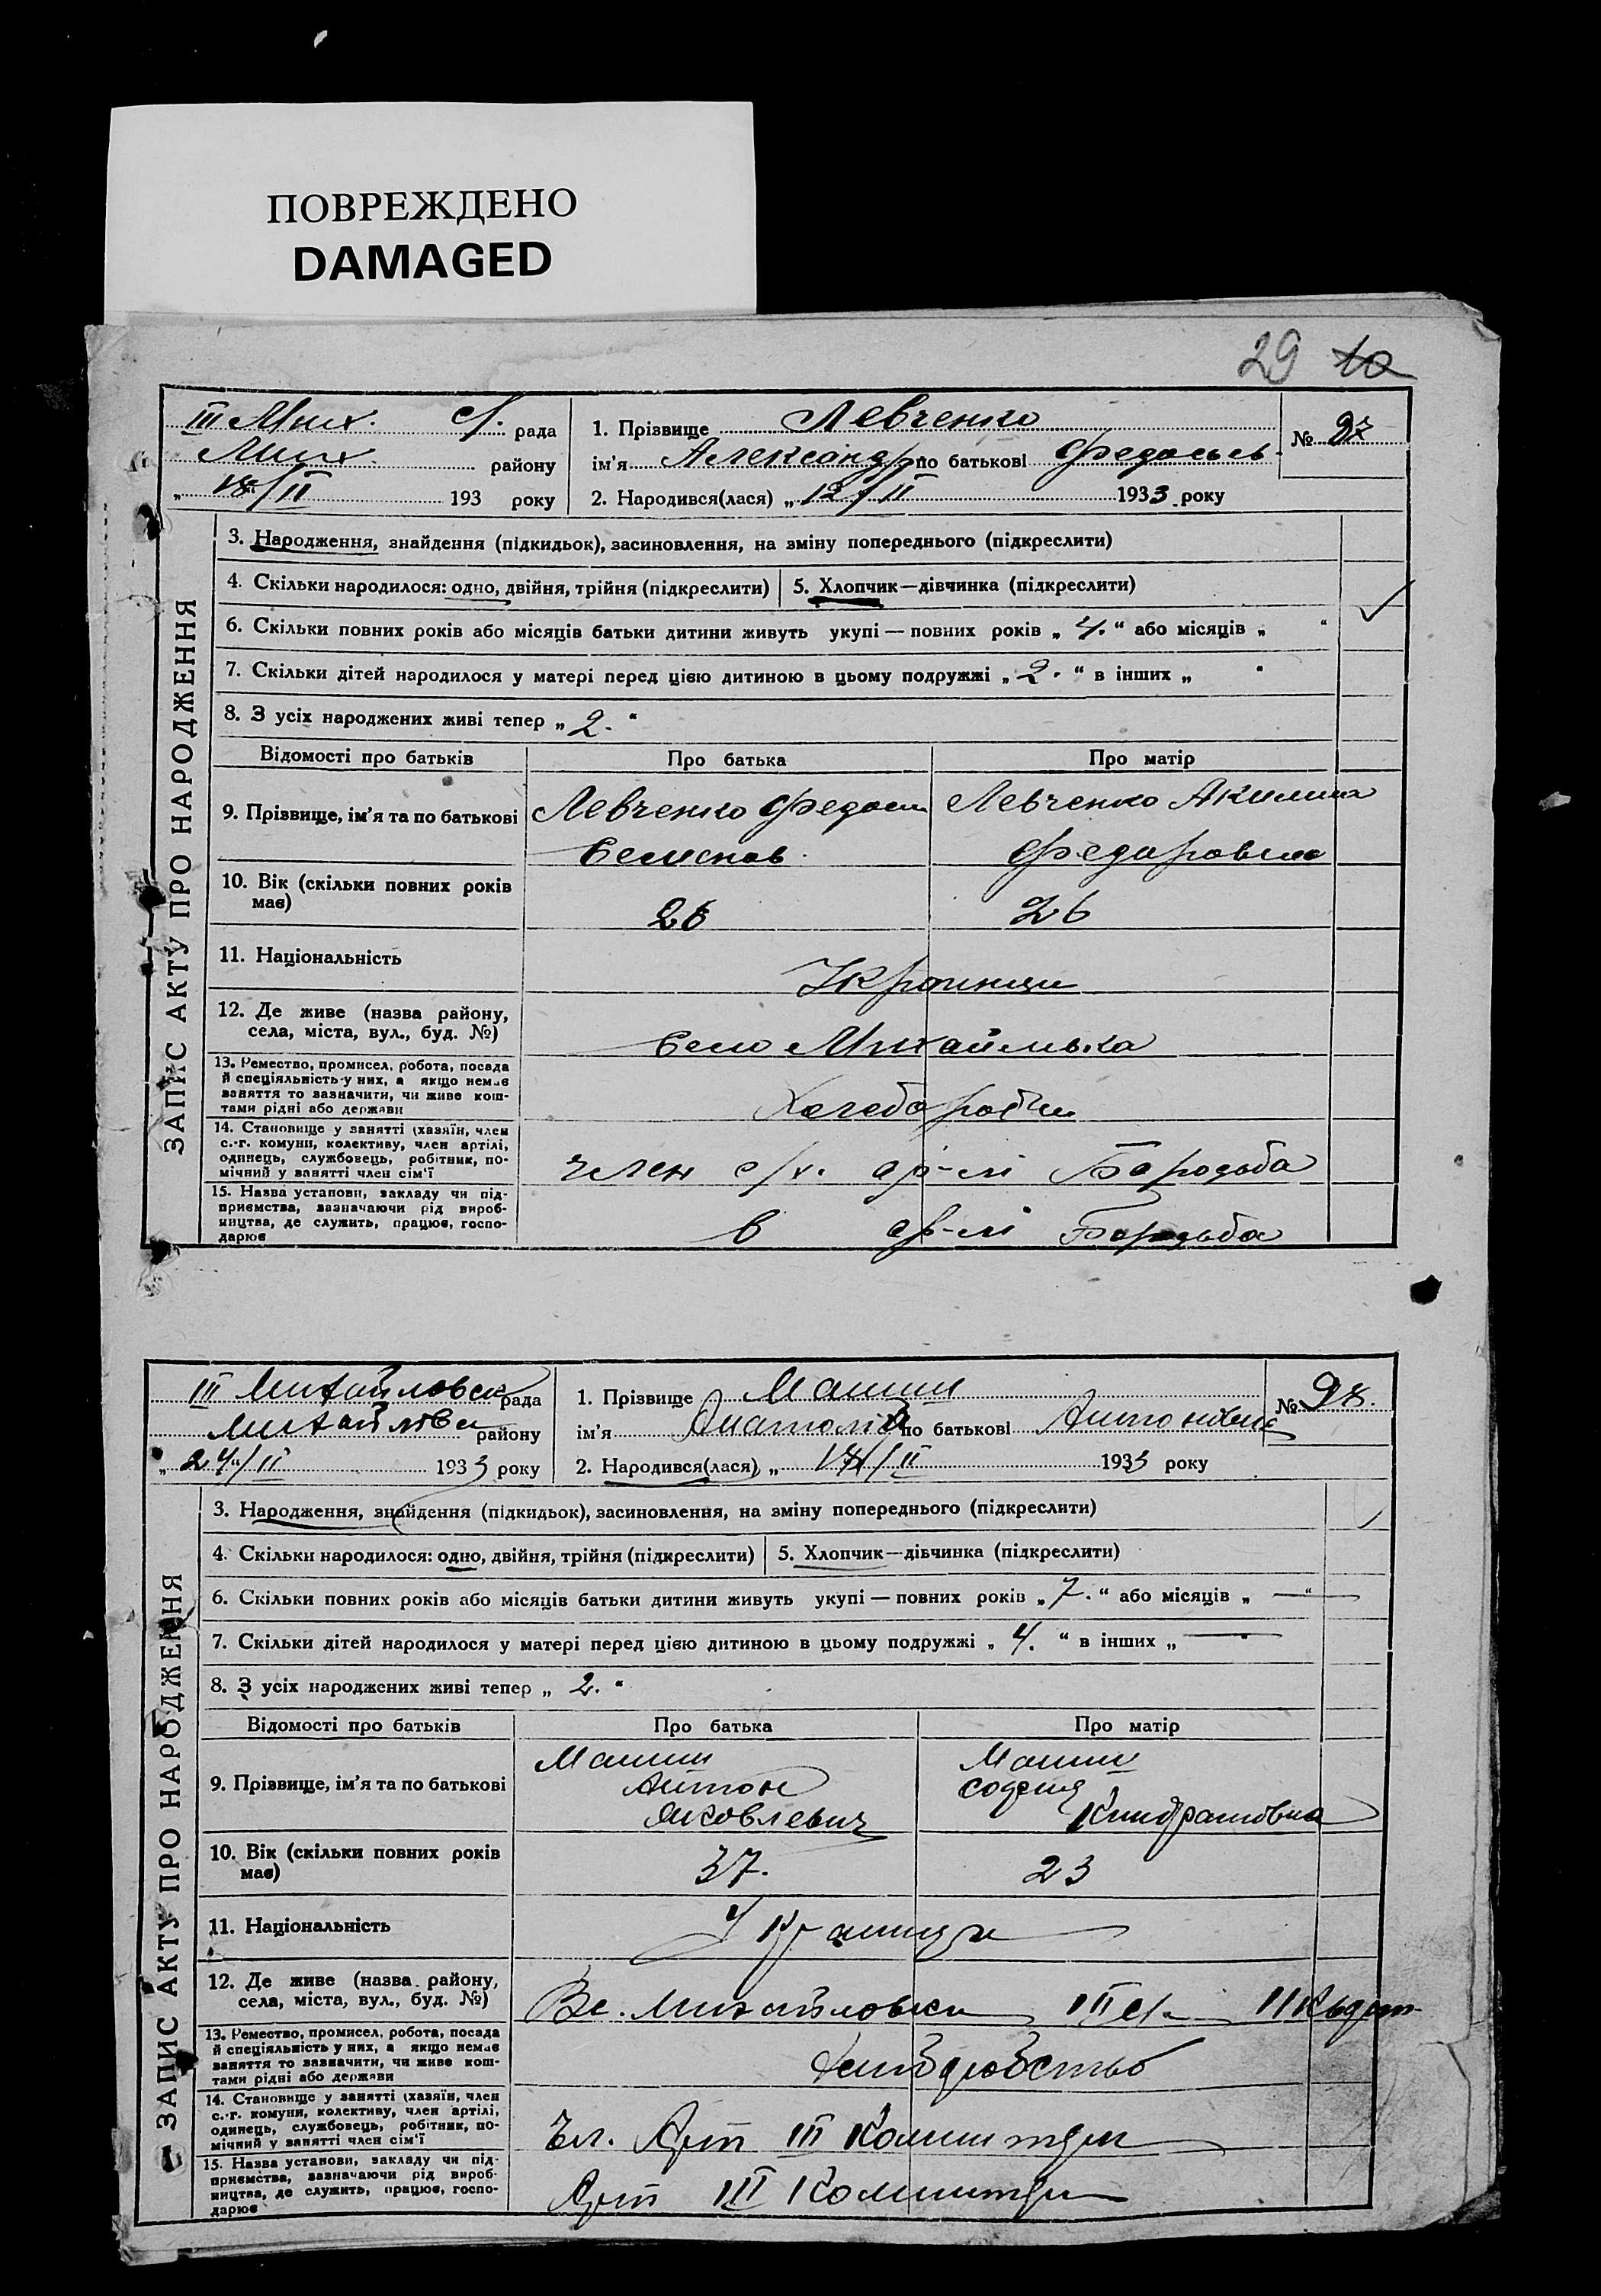 ПОВРЕЖДЕНО
DAMAGED
29 10
III Мих. с/. рада
Мих. району
„ 18/II 193 року
1. Прізвище Левченко
ім'я Александр по батькові Федосьев.
2. Народився(лася) „ 12/II 1933 року
№ 97
ЗАПИС АКТУ ПРО НАРОДЖЕННЯ
3. Народження, знайдення (підкидьок), засиновлення, на зміну попереднього (підкреслити)
4. Скільки народилося: одно, двійня, трійня (підкреслити) 5. Хлопчик—дівчинка (підкреслити)
6. Скільки повних років або місяців батьки дитини живуть укупі — повних років „ 4. “ або місяців „ “
7. Скільки дітей народилося у матері перед цією дитиною в цьому подружжі „ 2. “ в інших „ “
8. З усіх народжених живі тепер „ 2. “
Відомості про батьків Про батька Про матір
9. Прізвище, ім'я та по батькові
Левченко Федосий
Левченко Акилина
Федоровна
10. Вік (скільки повних років
має)
26 26
11. Національність
Українци
12. Де живе (назва району,
села, міста, вул., буд. №)
Село Михайлівка
13. Ремество, промисел, робота, посада
й спеціяльність у них, а якщо немає
заняття то зазначити, чи живе кош-
тами рідні або держави
14. Становище у занятті (хазяїн, член
с.-г. комуни, колективу, член артілі,
одинець, службовець, робітник, по-
мічний у занятті член сім'ї
член с/х. ар-лі Бородьба
15. Назва установи, закладу чи під-
приємства, зазначаючи рід вироб-
ництва, де служить, працює, госпо-
дарює
в ар-лі Бородьба
III Михайловск рада
Михайлівск району
„ 24/II 1933 року
1. Прізвище
ім'я Анатолій по батькові Антонович
2. Народився(лася) „ 17/II 1933 року
№ 98.
ЗАПИС АКТУ ПРО НАРОДЖЕННЯ
3. Народження, знайдення (підкидьок), засиновлення, на зміну попереднього (підкреслити)
4. Скільки народилося: одно, двійня, трійня (підкреслити) 5. Хлопчик—дівчинка (підкреслити)
6. Скільки повних років або місяців батьки дитини живуть укупі — повних років „ 7. “ або місяців „ — “
7. Скільки дітей народилося у матері перед цією дитиною в цьому подружжі „ 4. “ в інших „ — “
8. З усіх народжених живі тепер „ 2. “
Відомості про батьків Про батька Про матір
9. Прізвище, ім'я та по батькові
Антон
Яковлевич
Софія
Кіндратовна
10. Вік (скільки повних років
має)
37. 23
11. Національність
Українци
12. Де живе (назва району,
села, міста, вул., буд. №)
Михайловка III с/
13. Ремество, промисел, робота, посада
й спеціяльність у них, а якщо немає
заняття то зазначити, чи живе кош-
тами рідні або держави
14. Становище у занятті (хазяїн, член
с.-г. комуни, колективу, член артілі,
одинець, службовець, робітник, по-
мічний у занятті член сім'ї
Чл. Арт III Коминтерн
15. Назва установи, закладу чи під-
приємства, зазначаючи рід вироб-
ництва, де служить, працює, госпо-
дарює
Арт III Коминтерн